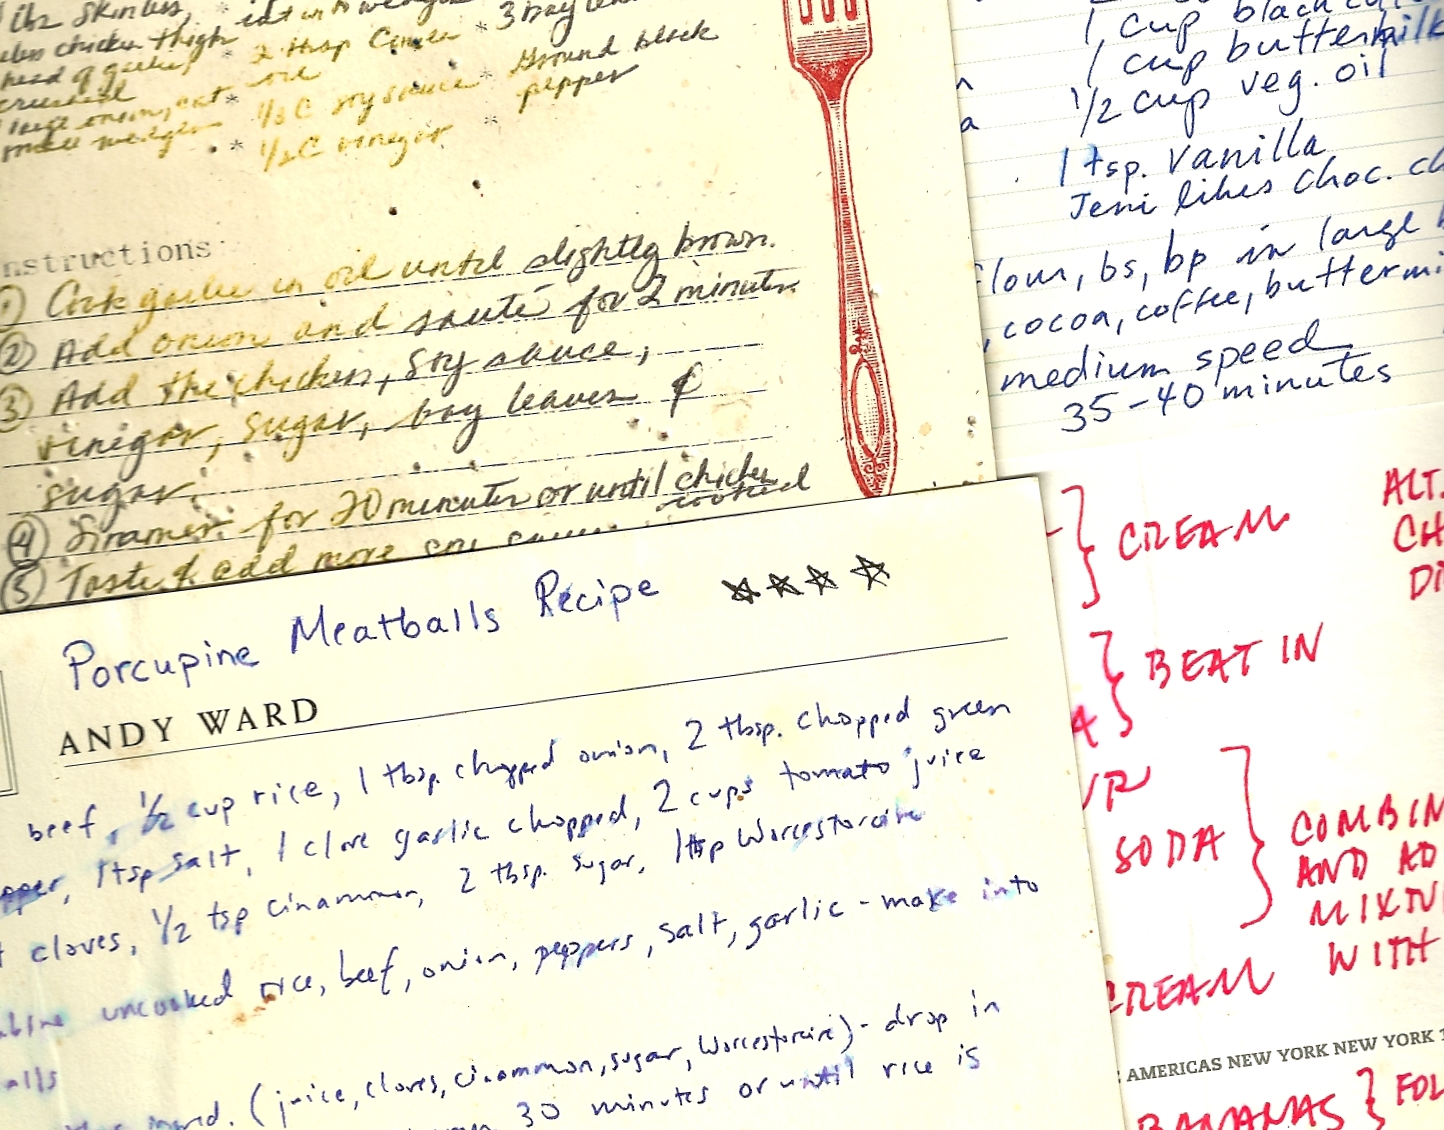 lbs skinless,
chicken thigh
head of garlic,
crushed
large onion, cut
* 2 tbsp Canola
oil
* 1/3 C soy sauce
* 1/2 C vinegar
* 3 bay
* Ground black
pepper
nstructions
① Cook garlic in oil until slightly brown.
② Add onion and sauté for 2 minutes.
③ Add the chicken, soy sauce,
vinegar, sugar, bay leaves &
sugar.
④ Simmer for 20 minutes or until chicken
cooked
⑤ Taste & add more soy sauce
1 cup black
1 cup buttermilk
1/2 cup veg. oil
1 tsp. vanilla
Jeni likes choc. ch
flour, bs, bp in large
, cocoa, coffee, buttermi
medium speed
35-40 minutes
Porcupine Meatballs Recipe ☆☆☆☆
ANDY WARD
beef, 1/2 cup rice, 1 tbsp. chopped onion, 2 tbsp. chopped green
pper, 1 tsp salt, 1 clove garlic chopped, 2 cups tomato juice
cloves, 1/2 tsp cinammon, 2 tbsp. sugar, 1 tsp Worcestorcire
bine uncooked rice, beef, onion, peppers, salt, garlic - make into
alls
ingred. (juice, cloves, cinammon, sugar, Worcestorcire) - drop in
30 minutes or until rice is
} CREAM
ALT.
CH
DI
} BEAT IN
A
UP
SODA } COMBIN
AND AD
MIXTU
WITH
CREAM
AMERICAS NEW YORK NEW YORK 1
BANANAS } FOL